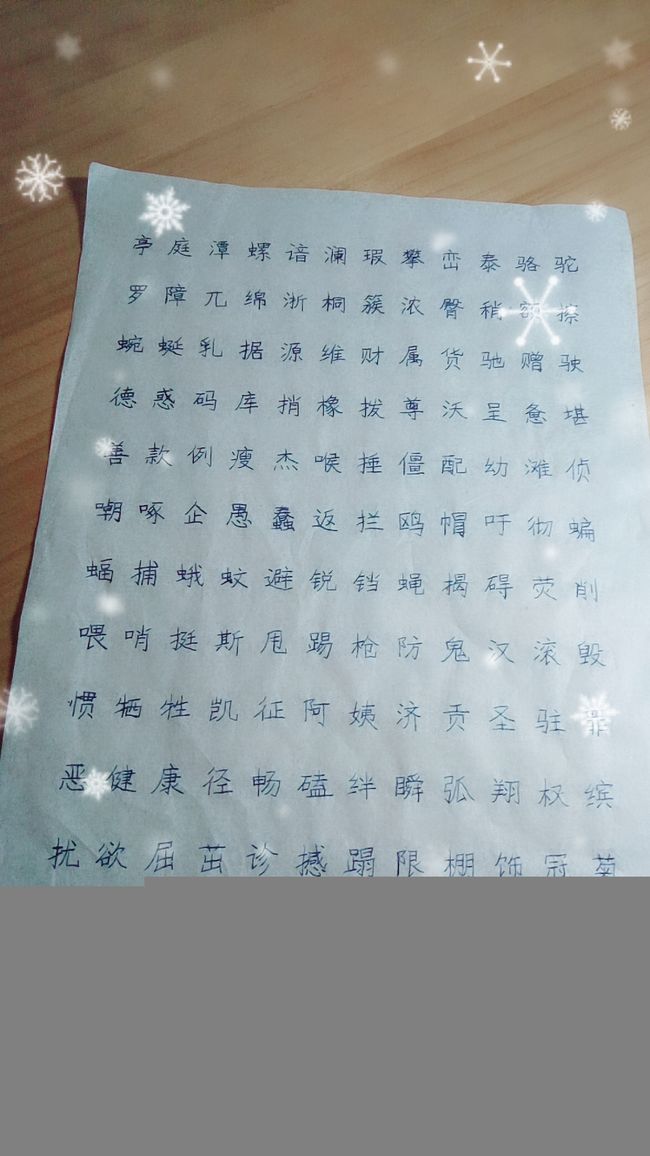 亭庭潭螺谙澜瑕攀峦泰骆驼
罗障兀绵浙桐簇浓臀稍额擦
蜿蜒乳据源维财属货驰赠驶
德惑码库捎橡拨尊沃呈惫堪
善款例瘦杰喉捶僵配幼滩侦
嘲啄企愚蠢返拦鸥帽吁彻蝙
蝠捕蛾蚊避锐铛蝇揭碍荧削
喂哨挺斯甩踢枪防鬼汉滚毁
惯牺牲凯征阿姨济贡圣驻罪
恶健康径畅磕绊瞬弧翔权缤
扰欲屈茁诊撼蹋限棚饰冠菊